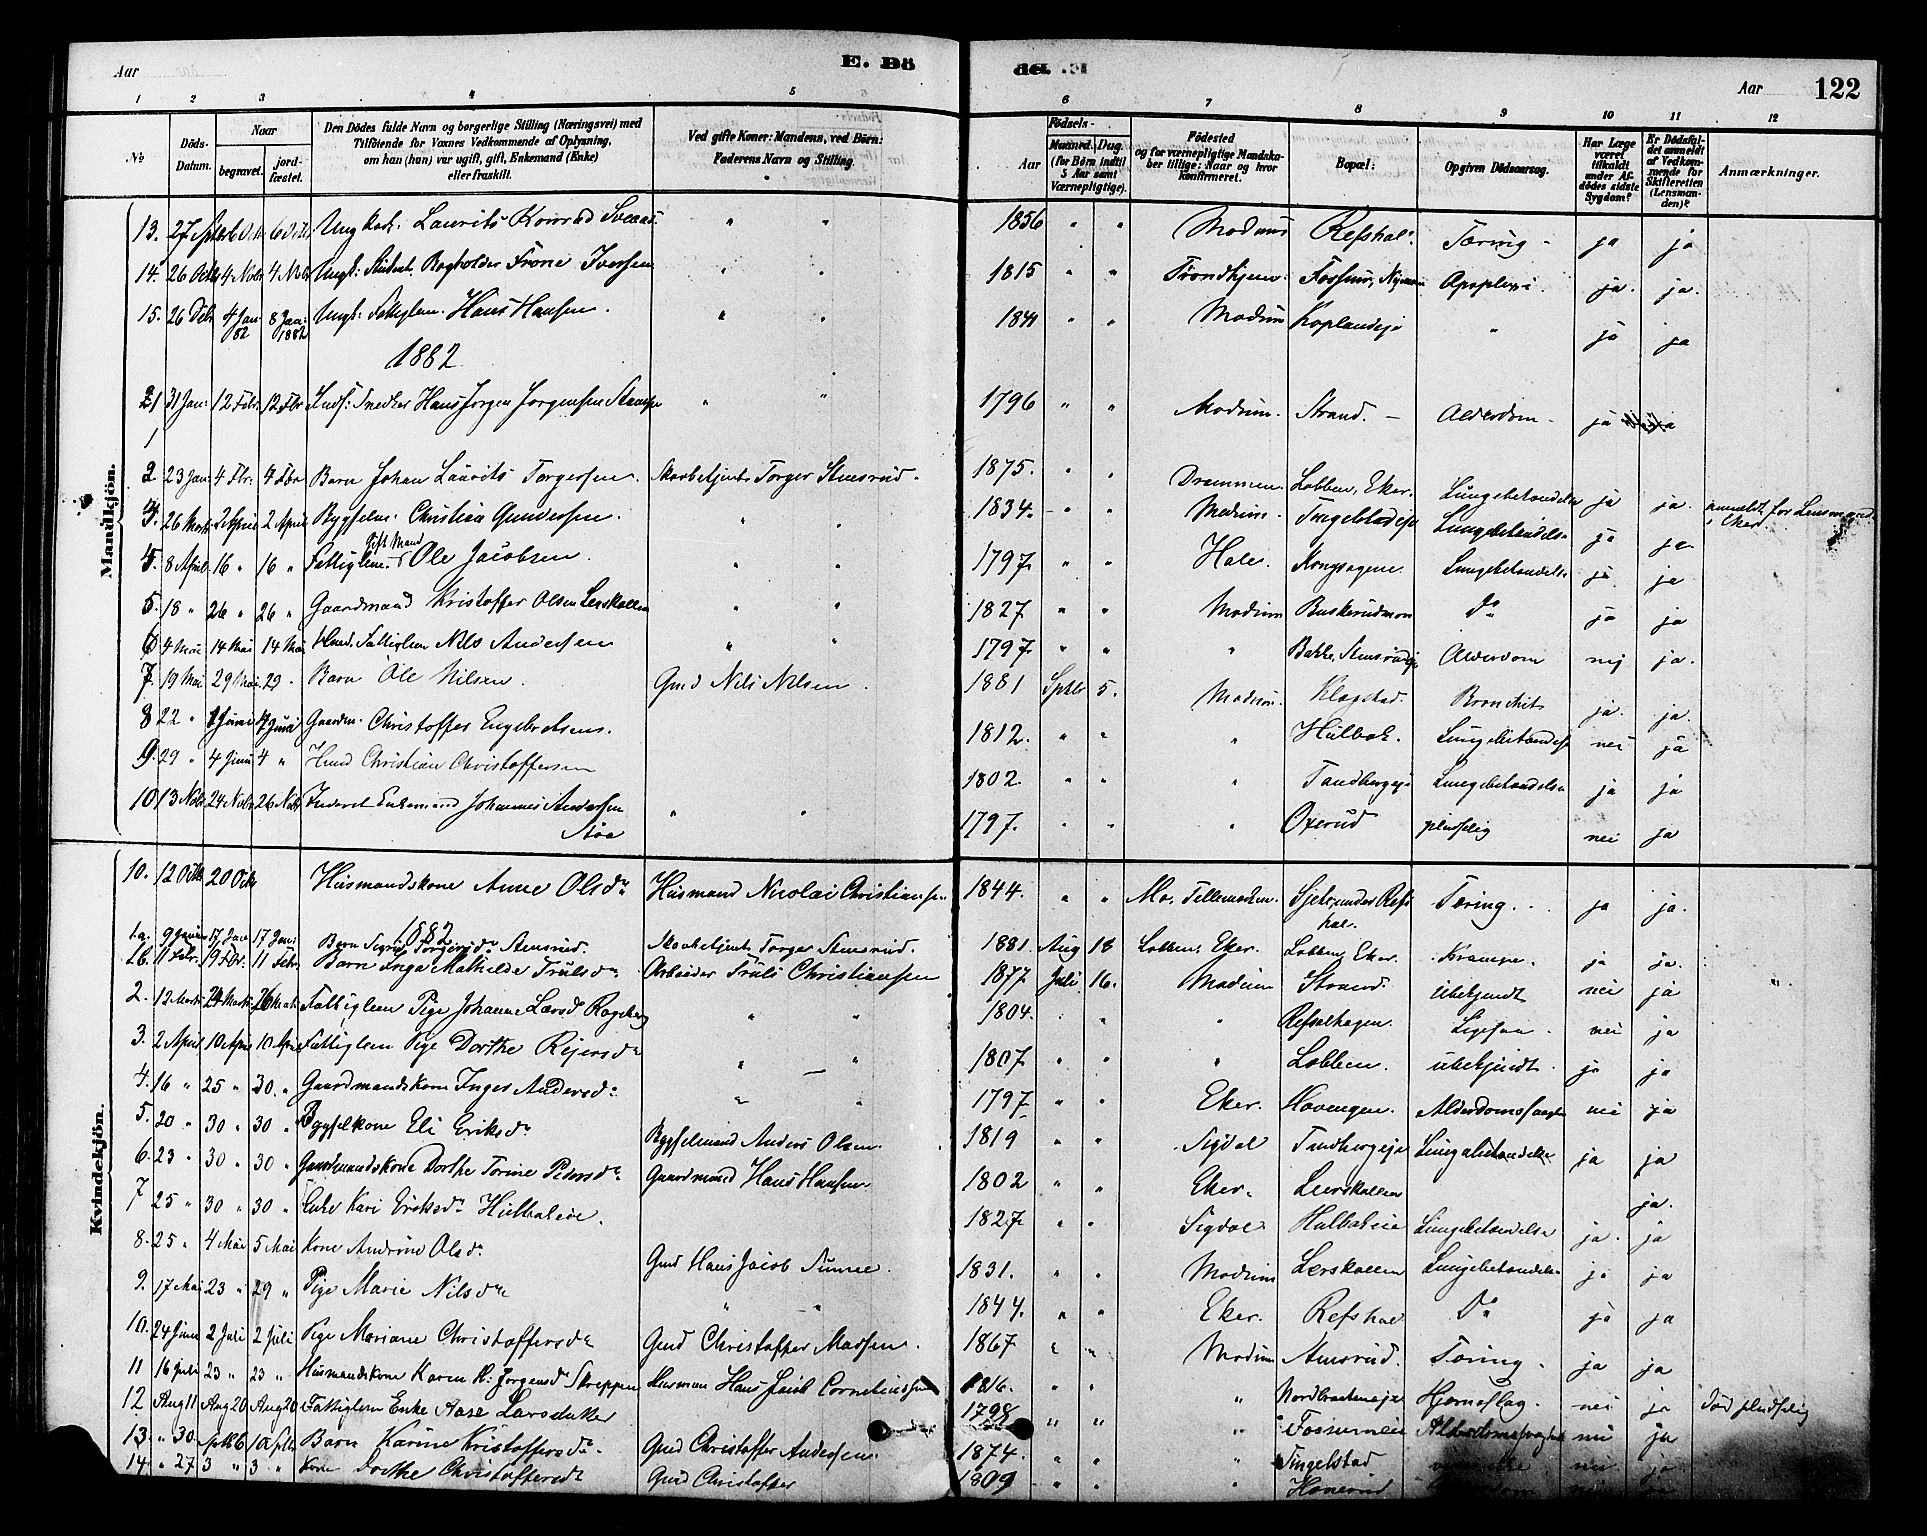 Aar E. Dö de. Aar 122
1 2 3 4 5 6 7 8 9 10 11 12
No Döds-Datum. Naar begravet. jordfæstet. Den Dödes fulde Navn og borgerlige Stilling (Næringsvei) med Tilföiende for Voxnes Vedkommende af Oplysning, om han (hun) var ugift, gift, Enkemand (Enke) eller fraskilt. Ved gifte Koner: Mandens, ved Börn: Faderens Navn og Stilling. Födsels- Aar Maaned. Dag. (for Börn indtil 5 Aar samt Værnepligtige). Födested og for værnepligtige Mandskaber tillige: Naar og hvor konfirmeret. Bopæl: Opgiven Dödsaarsag. Har Læge været tilkaldt under Afdödes sidste Sygdom? Er Dödsfaldet anmeldt af Vedkommende for Skifteretten (Lensmanden)? Anmærkninger.
Mandkjön.
13. 27 Septbr 6 Octr 6 Octr Ungkarl Laurits Konrad Sveaas " " 1856 " " Modum Refshal. Tæring - ja ja
14. 26 Octb 4 Novbr 4 Nobr Ungk: Student, Bogholder Frone Iversen " " 1815 " " Trondhjem. Fossum, Apoplexi. ja. ja.
15. 26 Debr 4 Jan: 82 8 Jan: 1882 Ungk: Fattiglem. Hans Hansen. " " 1841 " " Modum Koplandseje " ja ja
1882
1 31 Jan: 12 Febr. 12 Fbr Inds: Snedker Hans Jørgen Jørgensen " " 1796 " " Modum. Strand. - Alderdom - ja ja
2. 23 Jan: 4 Fbr: 4 Fbr Barn Johan Laurits Torgersen. Skovbetjent Torger Stensrud. 1875. " " Drammen. Lobben, Eker. Lungebetændelse ja ja. anmeldt for Lensmand i Eker.
3. 26 Marts 2 April 2 April Bygselm. Christian Gundersen. " " 1834. - " Modum. Lungebetændelse ja ja
4. 8 April 16 " 16 " Fattiglem. Gift Mand Ole Jacobsen " " 1797 " " Hole. Kongsagene. Lungebetændelse ja ja
5. 18 " 26 " 26 " Gaardmand Kristoffer Olsen Lerskallen " " 1827 " " Modum Buskerudmoen Do ja ja
6 4 Mai 14 Mai 14 Mai Fattiglem Nils Andersen " " 1797 " " " Bakke, Alderdom nej ja.
7. 19 Mai 29 Mai 29. Barn Ole Nilsen. Gmd Nils Nilsen. 1881 Sptbr 5. Modum. Klopstad. Bronchit ja. ja.
8 22 " Juni 4 Juni Gaardm. Christoffer Engebretsens. 1812. " " " Hulbak. Lungebetændelse nei ja
9. 29 " 4 Juni 4 " Husmd Christian Christoffersen 1802. " " " Tandbergeje Lungebetændelse ja ja
10 13 Nobr 24 Nobr 26 Nobr Inderst Enkemand Johannes Andersen Støa " " 1797. " " " Oxerud pludselig nei ja
Kvindekjön.
10. 12 Octb 20 Octr Husmandskone Anne Olsdr Husmand Nicolai Christiansen 1844. " " Mo, Tellemarken. Sjetr, under Refshal. Tæring. ja ja.
1882
1a. 9 Januar 17 Jan 17 Jan: Barn Sigrid Torgersdr Stensrud. Skovbetjent Torger Stensrud. 1881. Aug 18 Lobben, Eker. Lobben, Eker. Krampe. ja ja.
1b. 11 Febr. 19 Fbr. 11 Febr. Barn Inga Mathilde Trulsdr Arbeider Truls Christiansen 1877 Juli 16. Modum Strand. Ubekjendt nei ja ".
2. 12 Marts 24 Marts 26 Mart Fattiglem Pige Johanne Larsd " " 1804. . " " Refsalhagen. nei ja
3. 2 April 10 April 10 April Fattiglem Pige Dorthe Reiersdr " " 1807 " " " Lobben. ubekjendt. ja ja
4. 16 " 25 " 30. " Gaardmandskone Inger Andersdr: " " 1797 " " Eker. Hovengen. Alderdomssvaghed nei ja
5. 20 " 30 " 30 " Bygselkone Eli Eriksdr Bygselmand Anders Olsen 1819 " " Sigdal Tandbergeje Lungebetændelse ja ja
6. 23 " 30 " 30 " Gaardmandskone Dorthe Torine Pedersdr Gaardmand Hans Hansen. 1802 " " Eker. Leerskallen ja.
7 25 " 30 " 30 " Enke Kari Eriksdr Hulbakeie. 1827 " " Sigdal Hulbakeie Lungebetændelse ja. ja
8. 25 " 4 Mai 5 Mai Kone Andrine Olsdr Gmd Hans Jacob Sunne. 1831. " " Modum Lerskallen Lungebetændelse ja ja
9. 17 Mai 23 " 29 " Pige Marie Nilsdr " " 1844. " " Eker. Refshal Do ja ja
10. 24 Juni 2 Juli 2 Juli Pige Mariane Christoffersdr Gmd Christoffer Madsen. 1867 " " Modum Amsrud. Tæring. ja ja
11 16 Juli 23 " 23 " Husmandskone Karen K. Jørgensd Skreppen Husman Hans Jacob Corneliussen 1816. " " " Nordbraatenseje Hjerneslag. nei ja Død pludselig
12 Aug 11 Aug 20 Aug 20 Fattiglem Enke Aase Larsdatter 1798 " " " Fossumeie Alderdomssvaghed nei ja
13. " 30 Sptb 6 10 Sptb Barn Karine Kristoffersdr. Gmd Christoffer Andersen. 1874. " " " Tingelstad nei. ja.
14. " 27 3 " 3 " Kone Dorthe Christoffersdr Gmd Christoffer 1809 " " " Honerud